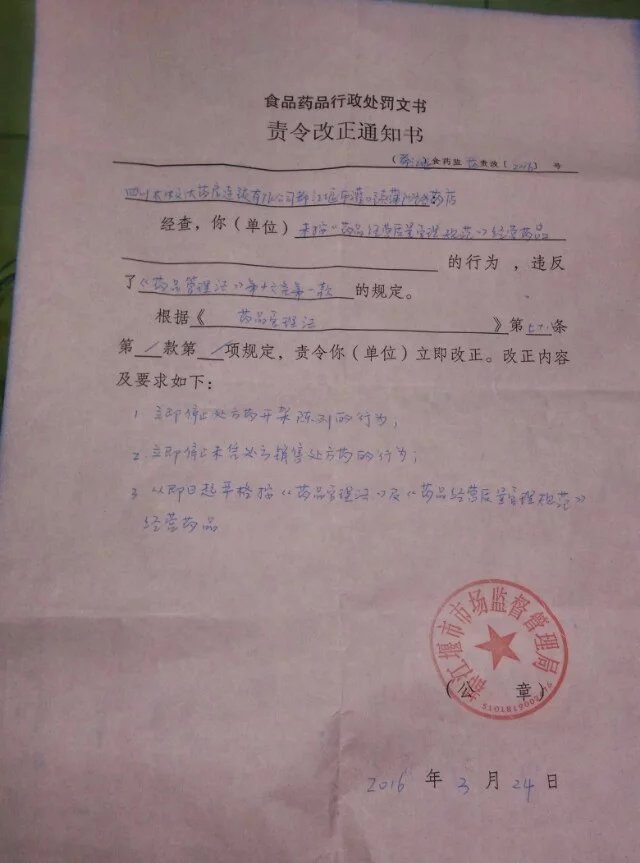 食品药品行政处罚文书
责令改正通知书
食药监 责改 [2016] 号
四川 大药房连锁有限公司都江堰市灌口 药店
经查,你(单位)未按《药品经营质量管理规范》经营药品
的行为,违反
了《药品管理法》第十六条第一款的规定。
根据《药品管理法》第七十 条
第/款第/项规定,责令你(单位)立即改正。改正内容
及要求如下:
1. 立即停止处方药开架陈列的行为;
2. 立即停止未凭处方销售处方药的行为;
3. 从即日起严格按《药品管理法》及《药品经营质量管理规范》
经营药品
都江堰市市场监督管理局
(公 章)
2016年3月24日